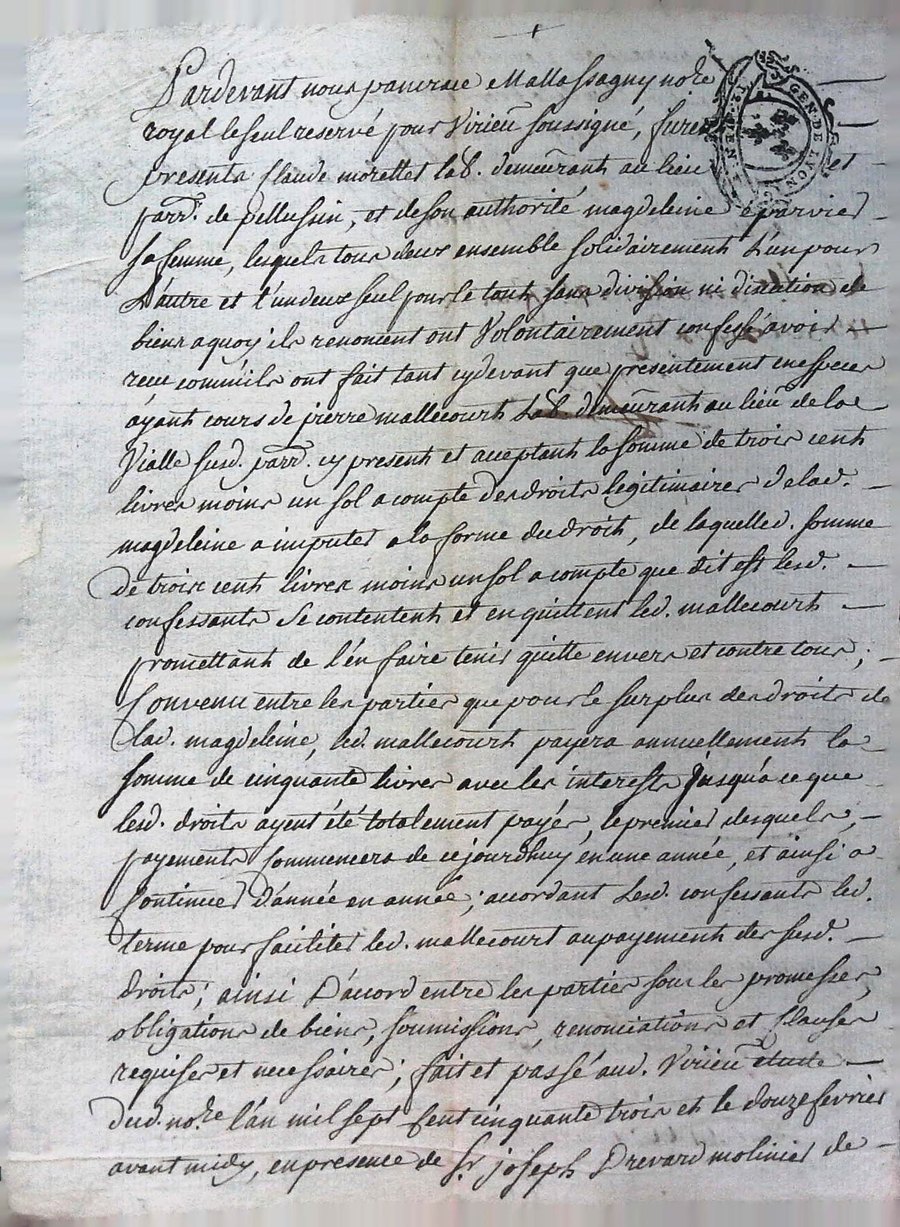 Pardevant nous pancrace Mallassagny no.re
royal le seul reservé pour Virieu soussigné, furent
GEN. DE LYON
presents Claude morettet lab. demeurant au lieu et
parr. de pellussin, et de son authorité magdeleine eparvier
sa femme, lesquels tous deux ensemble solidairement L'un pour
L'autre et l'un deux seul pour le tout sans division ni discution de
biens aquoy ils renoncent ont Volontairement confessé avoir
receu comm'ils ont fait tant cydevant que presentement en especes
ayant cours de pierre mallecourt Lab. demeurant au lieu de la
Vialle susd. parr. cy present et aceptant la somme de trois cent
livres moins un sol a compte des droits legitimaires de lad.
magdeleine a imputer a la forme du droit, de laquelle d. somme
de trois cent livres moins un sol a compte que dit est lesd.
confessants se contentent et en quittent led. mallecourt
promettant de l'en faire tenir quitte envers et contre tous;
Convenu entre les parties que pour le surplus des droits de
lad. magdeleine, led. mallecourt payera annuellement la
somme de cinquante livres avec les interests jusqu'a ce que
lesd. droits ayent été totalement payés, le premier desquels
payements commencera de cejourdhuy en une année, et ainsi a
continuer d'année en année; acordant Lesd. confessants led.
terme pour faciliter led. mallecourt au payement des susd.
droits; ainsi D'acord entre les parties sous les promesses,
obligations de biens, soumissions, renonciations et Clauses
requises et necessaires; fait et passé aud. Virieu etude
dud. no.re l'an mil sept Cent cinquante trois et le douze fevrier
avant midy, en presence de Sr. joseph Drevard molinier de